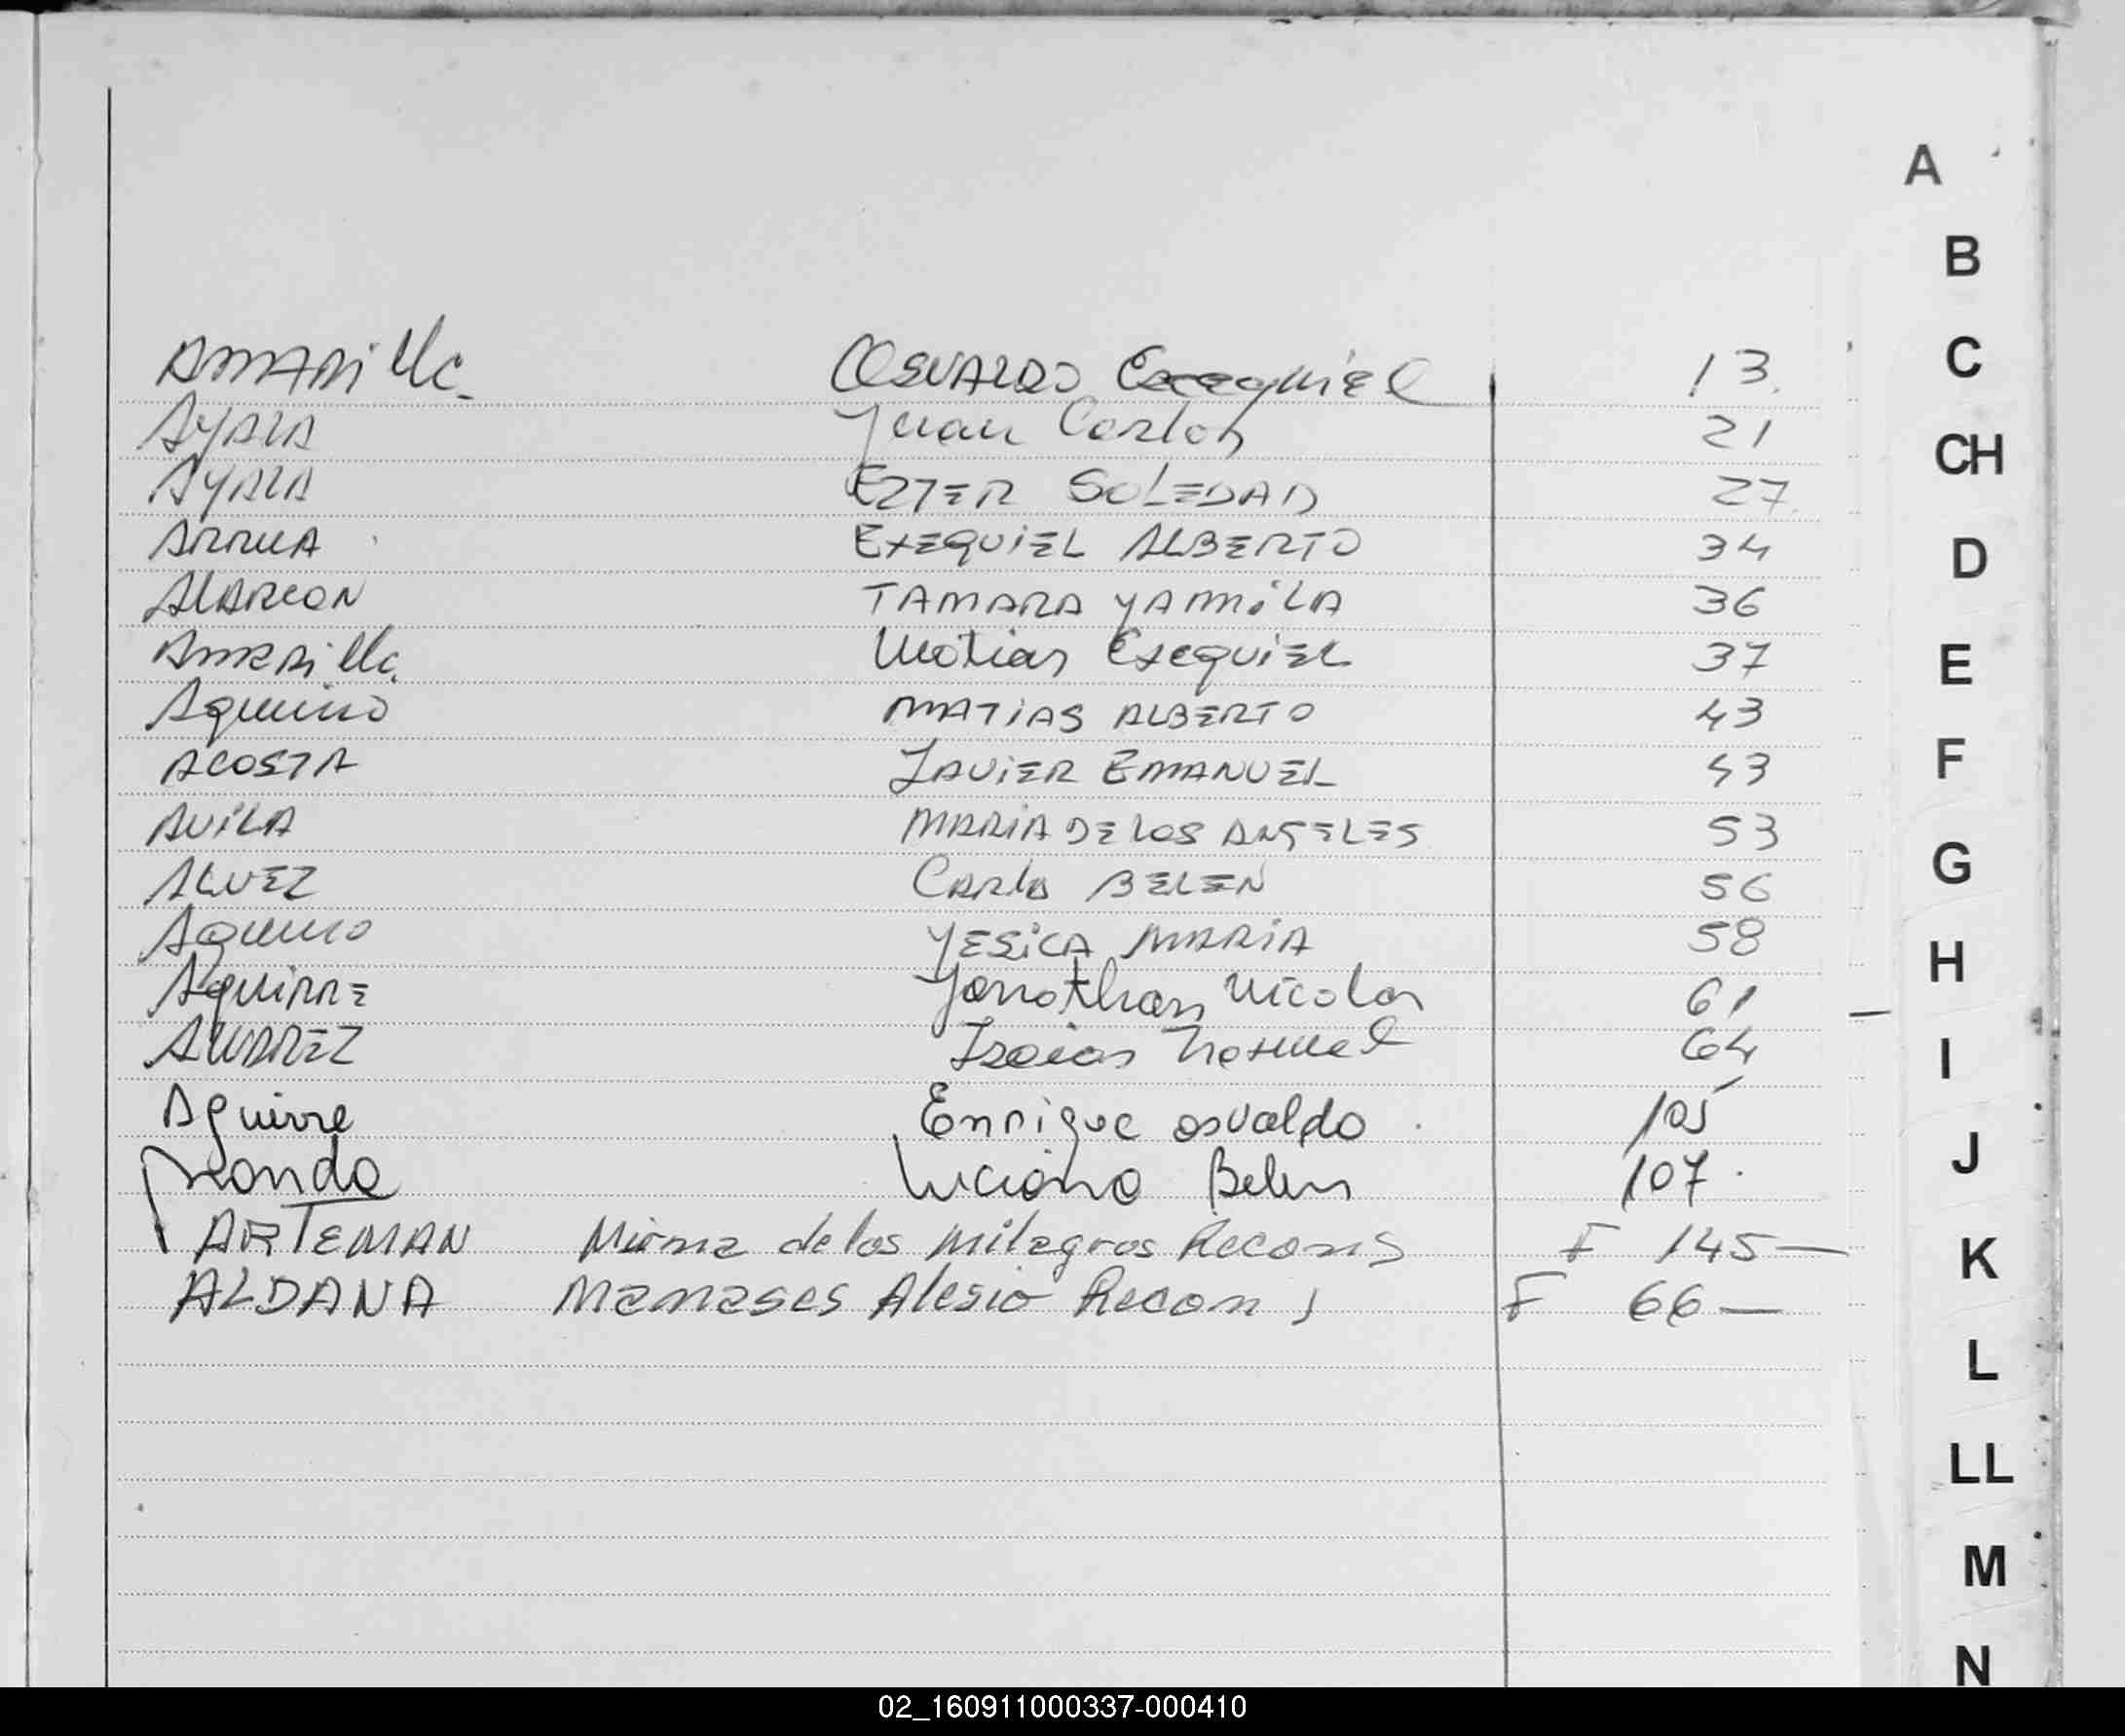 A
B
C
CH
D
E
F
G
H
I
J
K
L
LL
M
N
AMARillA. OSVALDO Exequiel 13.
AYALA Juan Carlos 21
AYALA EZTER SOLEDAD 27.
ARRUA EXEQUIEL ALBERTO 34
ALARCON TAMARA YAMILA 36
AMARilla. Matias Exequiel 37
Aquino MATIAS ALBERTO 43
ACOSTA JAVIER EMANUEL 43
AVILA MARIA DE LOS ANGELES 53
ALVEZ CARLA BELEN 56
Aquino YESICA MARIA 58
AQUIRRE Jonathan Nicolas 61
ALVAREZ Isaias 64
Aguirre Enrique osvaldo 105
Aranda Luciana Belen 107.
ARTEMAN Mirna de los milagros Recons F 145—
ALDANA Manases Alesio Recon F 66—
02_160911000337-000410